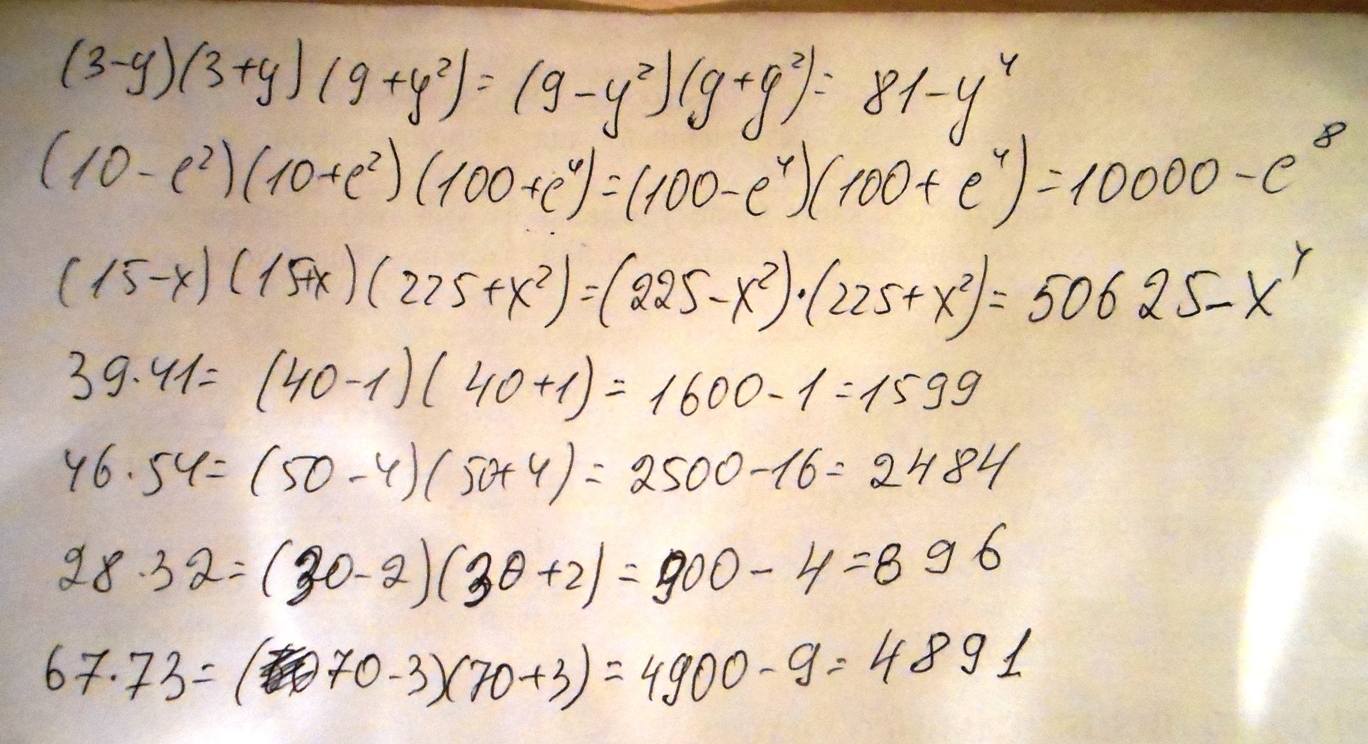 (3-y)(3+y)(9+y²)=(9-y²)(9+y²)=81-y⁴
(10-c²)(10+c²)(100+c⁴)=(100-c⁴)(100+c⁴)=10000-c⁸
(15-x)(15+x)(225+x²)=(225-x²)·(225+x²)=50625-x⁴
39·41=(40-1)(40+1)=1600-1=1599
46·54=(50-4)(50+4)=2500-16=2484
28·32=(30-2)(30+2)=900-4=896
67·73=(70-3)(70+3)=4900-9=4891